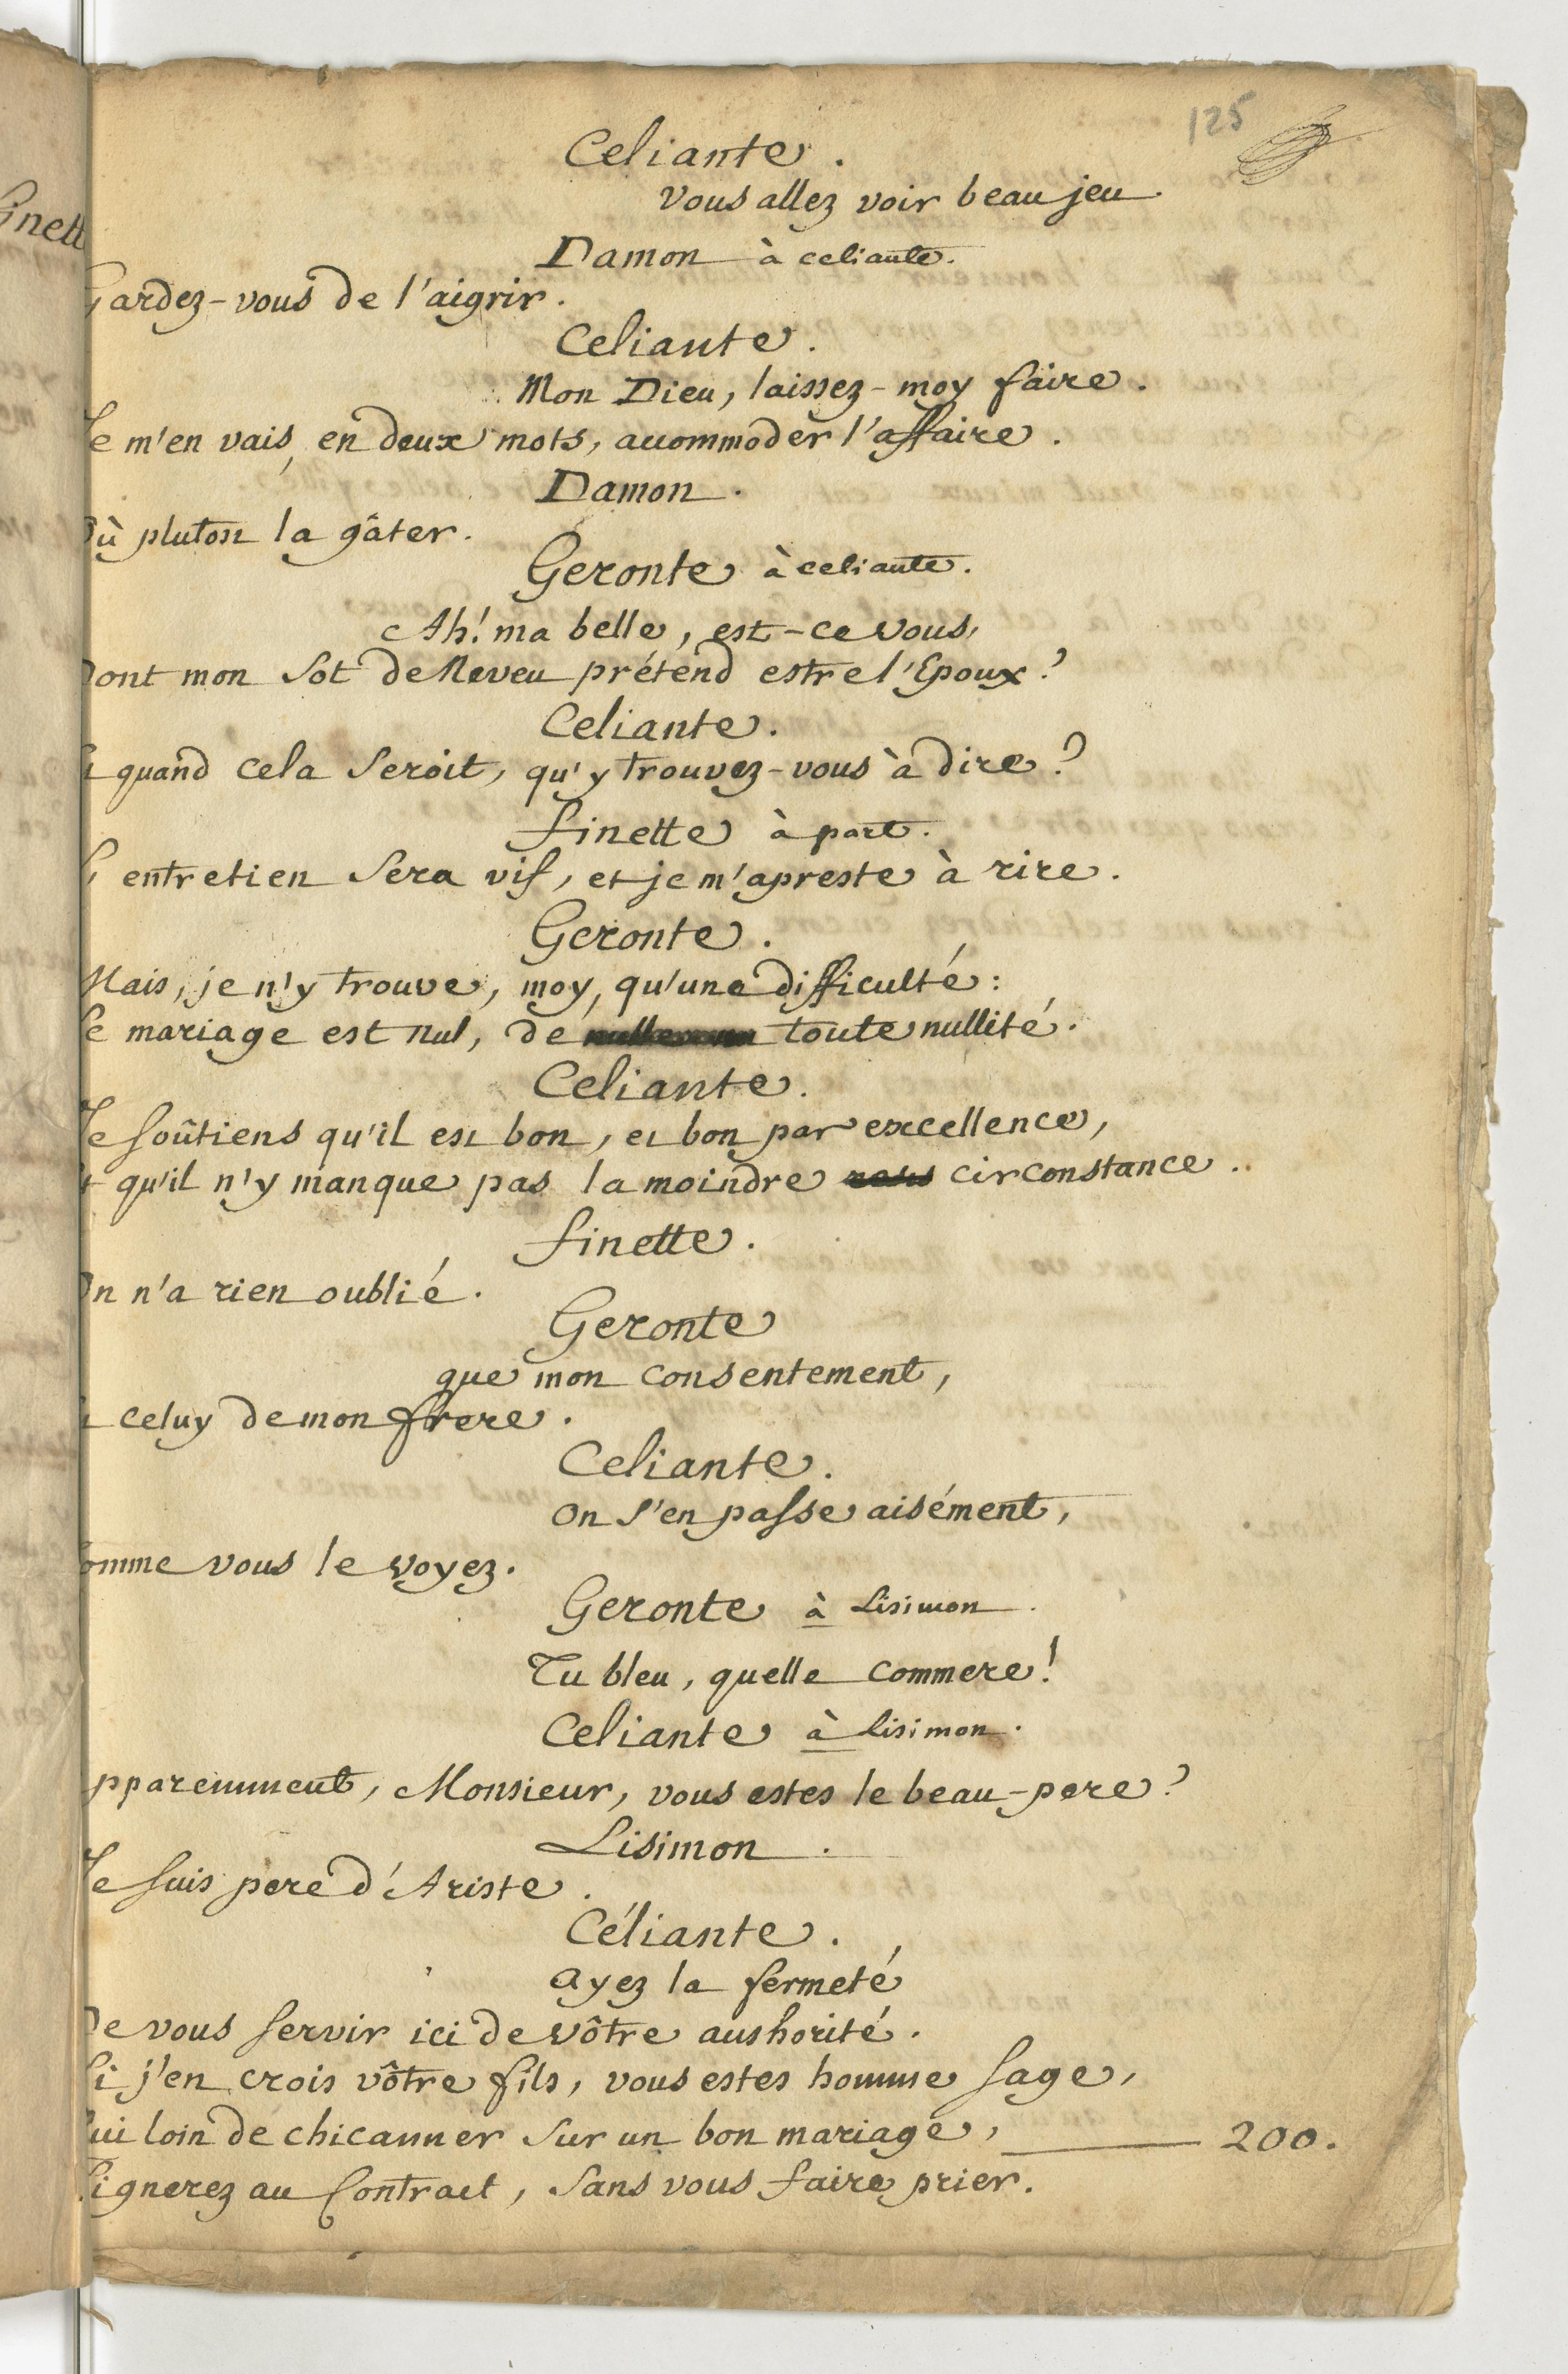 125
Celiante.
Vous allez voir beau jeu.
Damon à celiante.
Gardez-vous de l'aigrir.
Celiante.
Mon Dieu, laissez-moy faire.
Je m'en vais, en deux mots, accommoder l'affaire.
Damon.
Où plutost la gâter.
Geronte à celiante.
Ah! ma belle, est-ce vous,
Dont mon Sot de Neveu prétend estre l'Epoux?
Celiante.
Et quand cela Seroit, qu'y trouvez-vous à dire?
finette à part.
L'entretien Sera vif, et je m'apreste à rire.
Geronte.
Mais, je n'y trouve, moy, qu'une difficulté:
Le mariage est nul, de toute nullité.
Celiante.
Je soûtiens qu'il est bon, et bon par excellence,
Et qu'il n'y manque pas la moindre circonstance.
finette.
On n'a rien oublié.
Geronte
que mon consentement,
Et celuy de mon frere.
Celiante.
On s'en passe aisément,
Comme vous le voyez.
Geronte à Lisimon.
Tu bleu, quelle commere!
Celiante à lisimon.
Apparemment, Monsieur, vous estes le beau-pere?
Lisimon.
Je suis pere d'Ariste.
Céliante.
ayez la fermeté
De vous servir ici de vôtre authorité.
Si j'en crois vôtre fils, vous estes homme sage,
Qui loin de chicanner sur un bon mariage, 200.
Signerez au Contract, Sans vous faire prier.